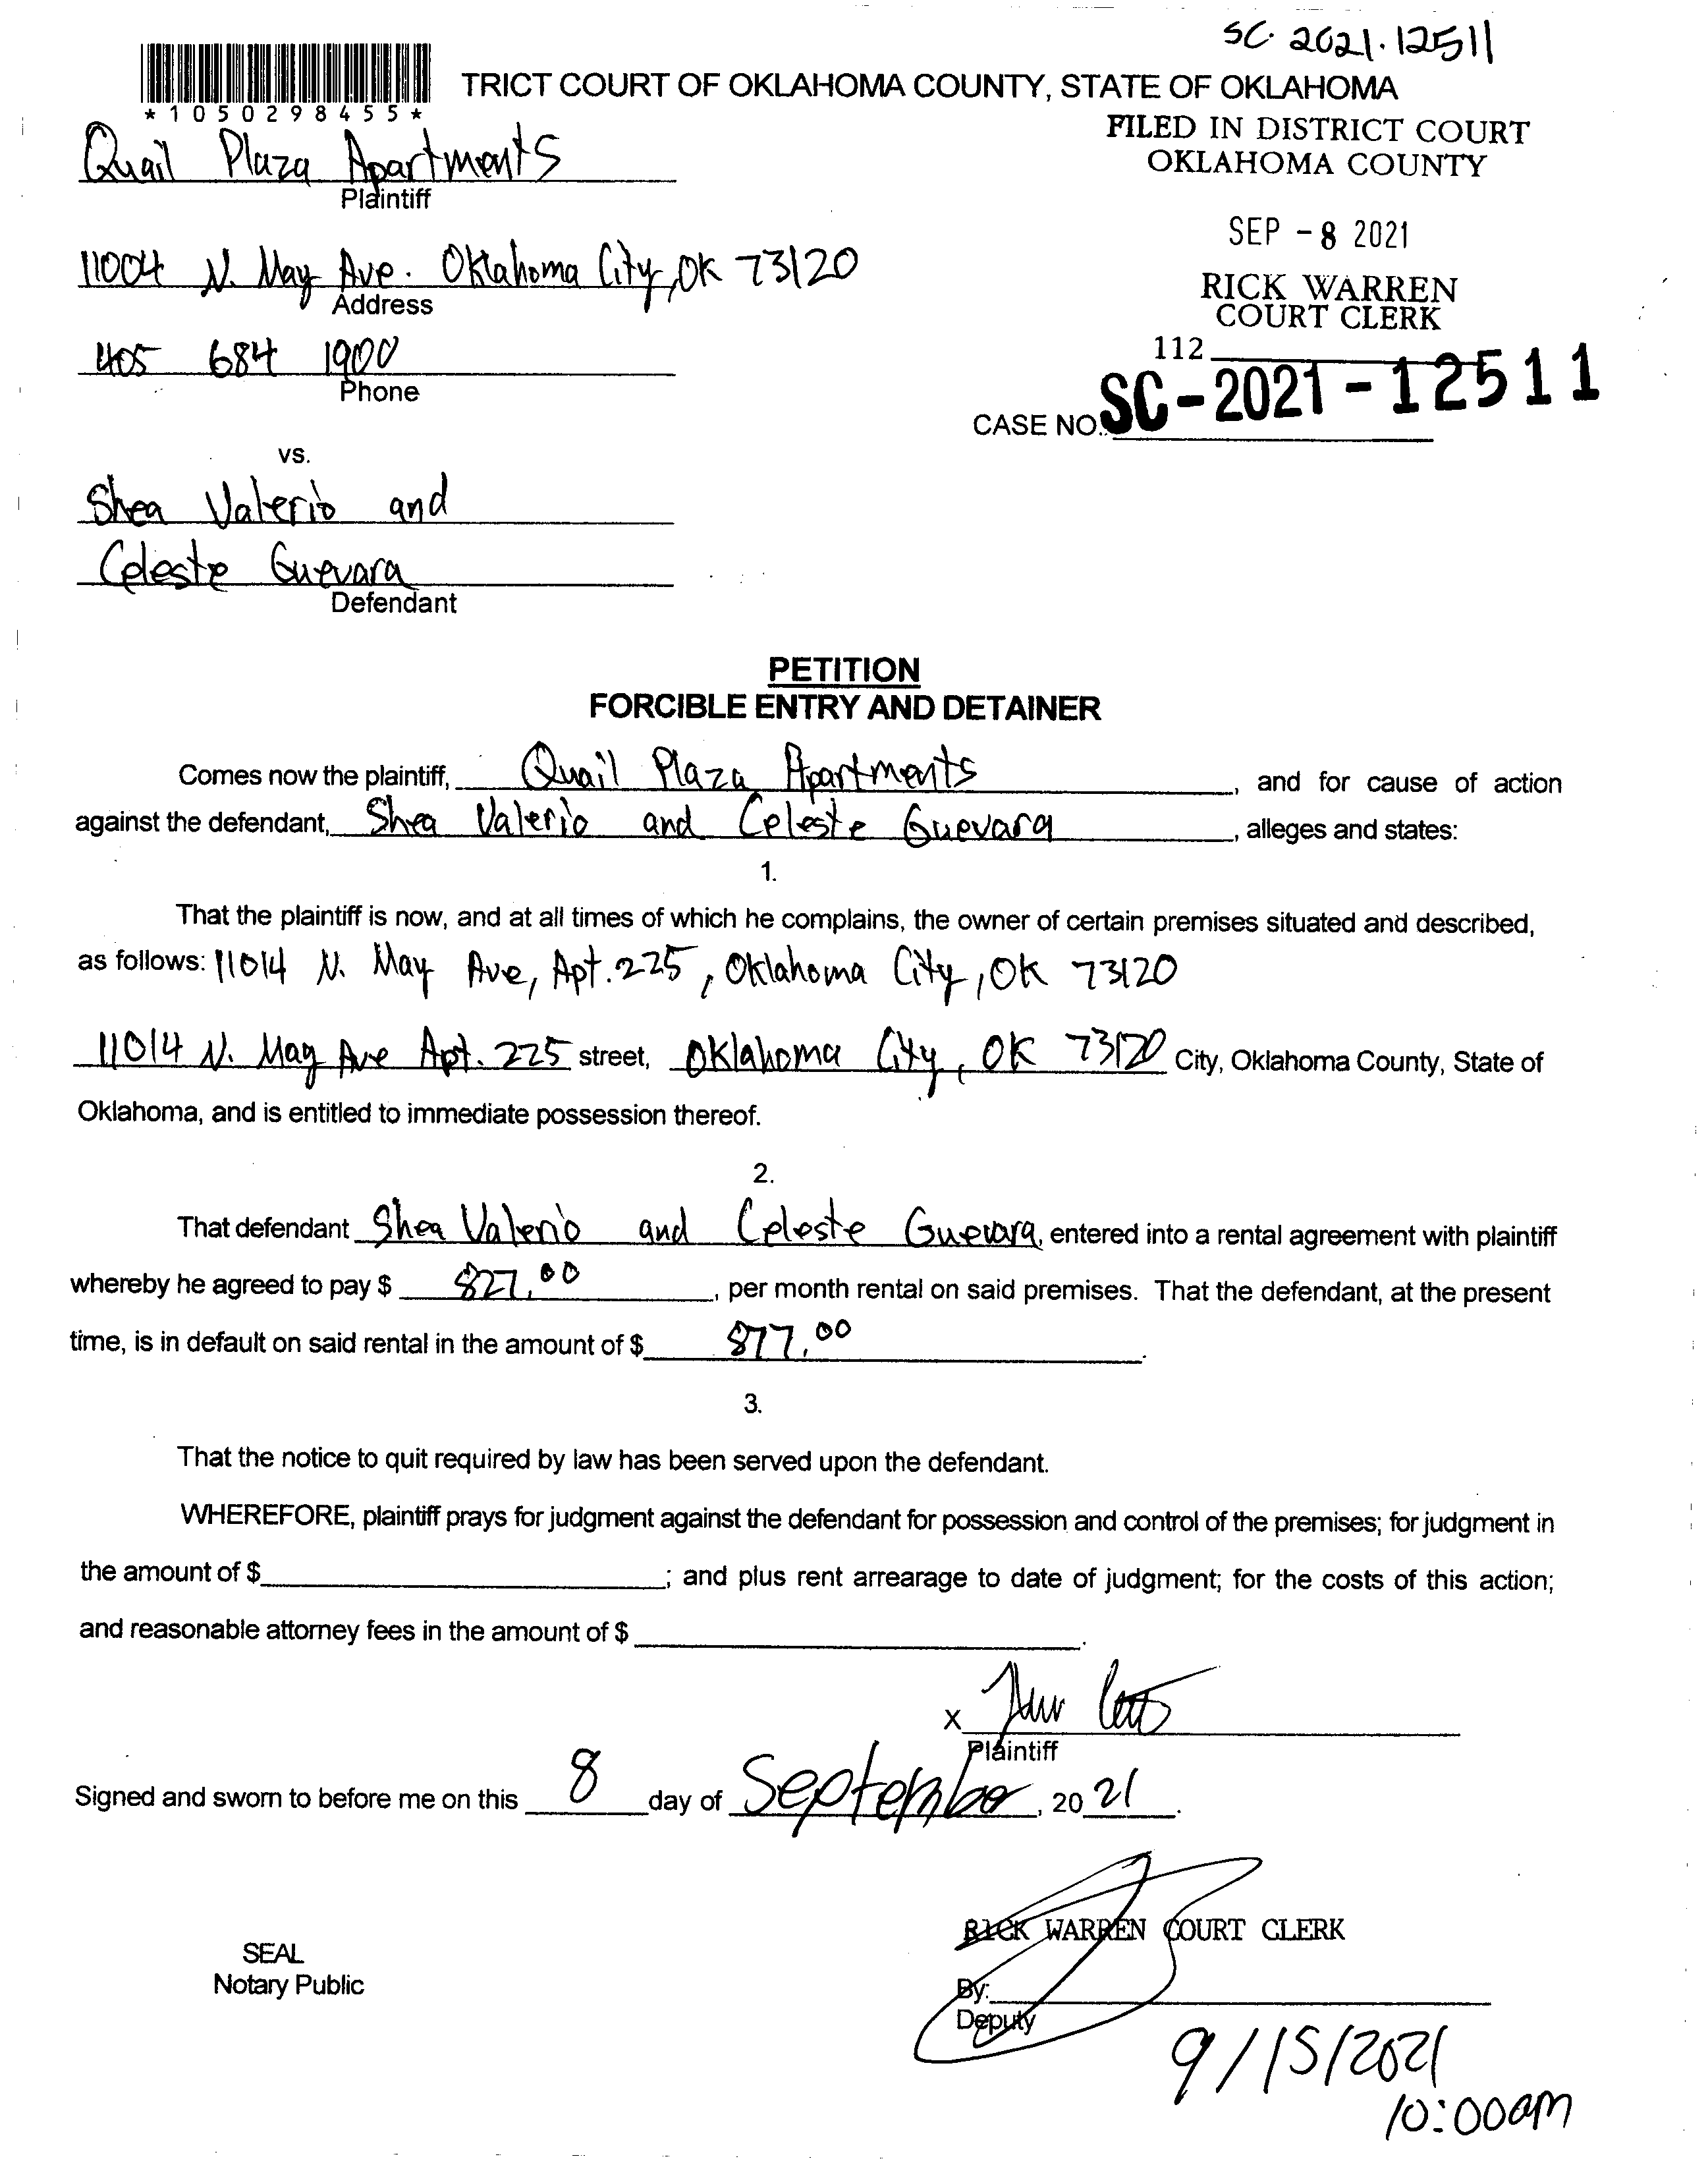 SC. 2021. 12511
TRICT COURT OF OKLAHOMA COUNTY, STATE OF OKLAHOMA
*1050298455*
FILED IN DISTRICT COURT
OKLAHOMA COUNTY
Quail Plaza Apartments
Plaintiff
SEP -8 2021
11004 N. May Ave. Oklahoma City, OK 73120
Address
RICK WARREN
COURT CLERK
405 684 1900
Phone
112
CASE NO. SC-2021-12511
vs.
Shea Valerio and
Celeste Guevara
Defendant
PETITION
FORCIBLE ENTRY AND DETAINER
Comes now the plaintiff, Quail Plaza Apartments, and for cause of action
against the defendant, Shea Valerio and Celeste Guevara, alleges and states:
1.
That the plaintiff is now, and at all times of which he complains, the owner of certain premises situated and described,
as follows: 11014 N. May Ave, Apt. 225, Oklahoma City, OK 73120
11014 N. May Ave Apt. 225 street, Oklahoma City, OK 73120 City, Oklahoma County, State of
Oklahoma, and is entitled to immediate possession thereof.
2.
That defendant Shea Valerio and Celeste Guevara, entered into a rental agreement with plaintiff
whereby he agreed to pay $ 827.00, per month rental on said premises. That the defendant, at the present
time, is in default on said rental in the amount of $ 877.00.
3.
That the notice to quit required by law has been served upon the defendant.
WHEREFORE, plaintiff prays for judgment against the defendant for possession and control of the premises; for judgment in
the amount of $ ; and plus rent arrearage to date of judgment; for the costs of this action;
and reasonable attorney fees in the amount of $ .
X
Plaintiff
Signed and sworn to before me on this 8 day of September, 20 21.
RICK WARREN COURT CLERK
SEAL
Notary Public
By:
Deputy
9/15/2021
10:00am